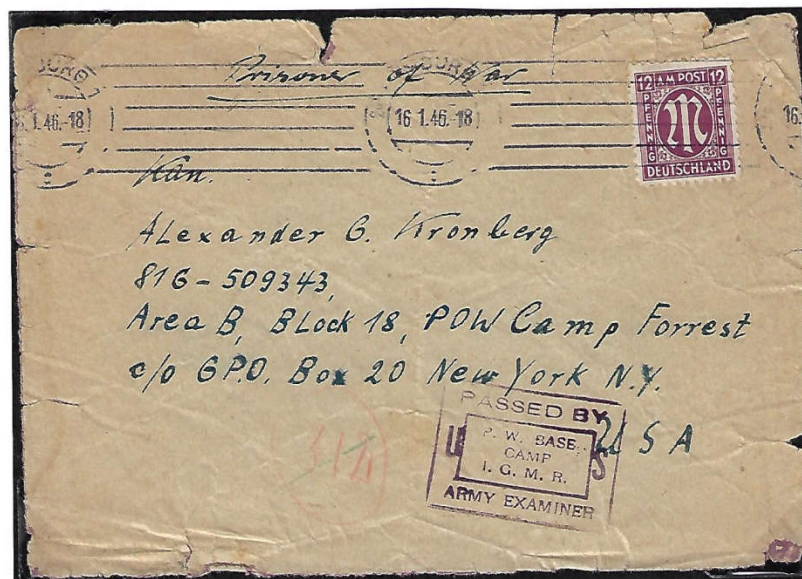 Prisoner of War
1.46.-18
16 1.46.-18
16.
12 AM POST 12
PFENNIG PFENNIG
DEUTSCHLAND
Kan.
Alexander G. Kronberg
81G-509343,
Area B, Block 18, POW Camp Forrest
c/o G.P.O. Box 20 New York N.Y.
USA
PASSED BY
U S
P. W. BASE
CAMP
I. G. M. R.
ARMY EXAMINER